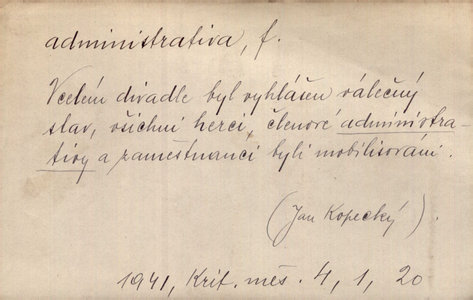 administrativa, f.
Vcelém divadle byl vyhlášen válečný
stav, všichni herci, členové administra-
tivy a zaměstnanci byli mobilisováni.
(Jan Kopecký).
1941, Krit. měs. 4, 1, 20